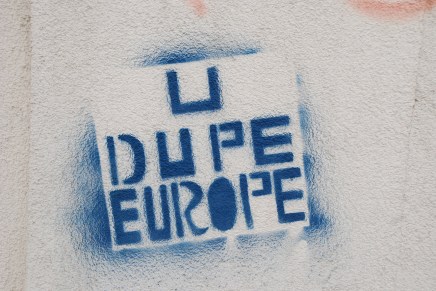 U
DUPE
EUROPE